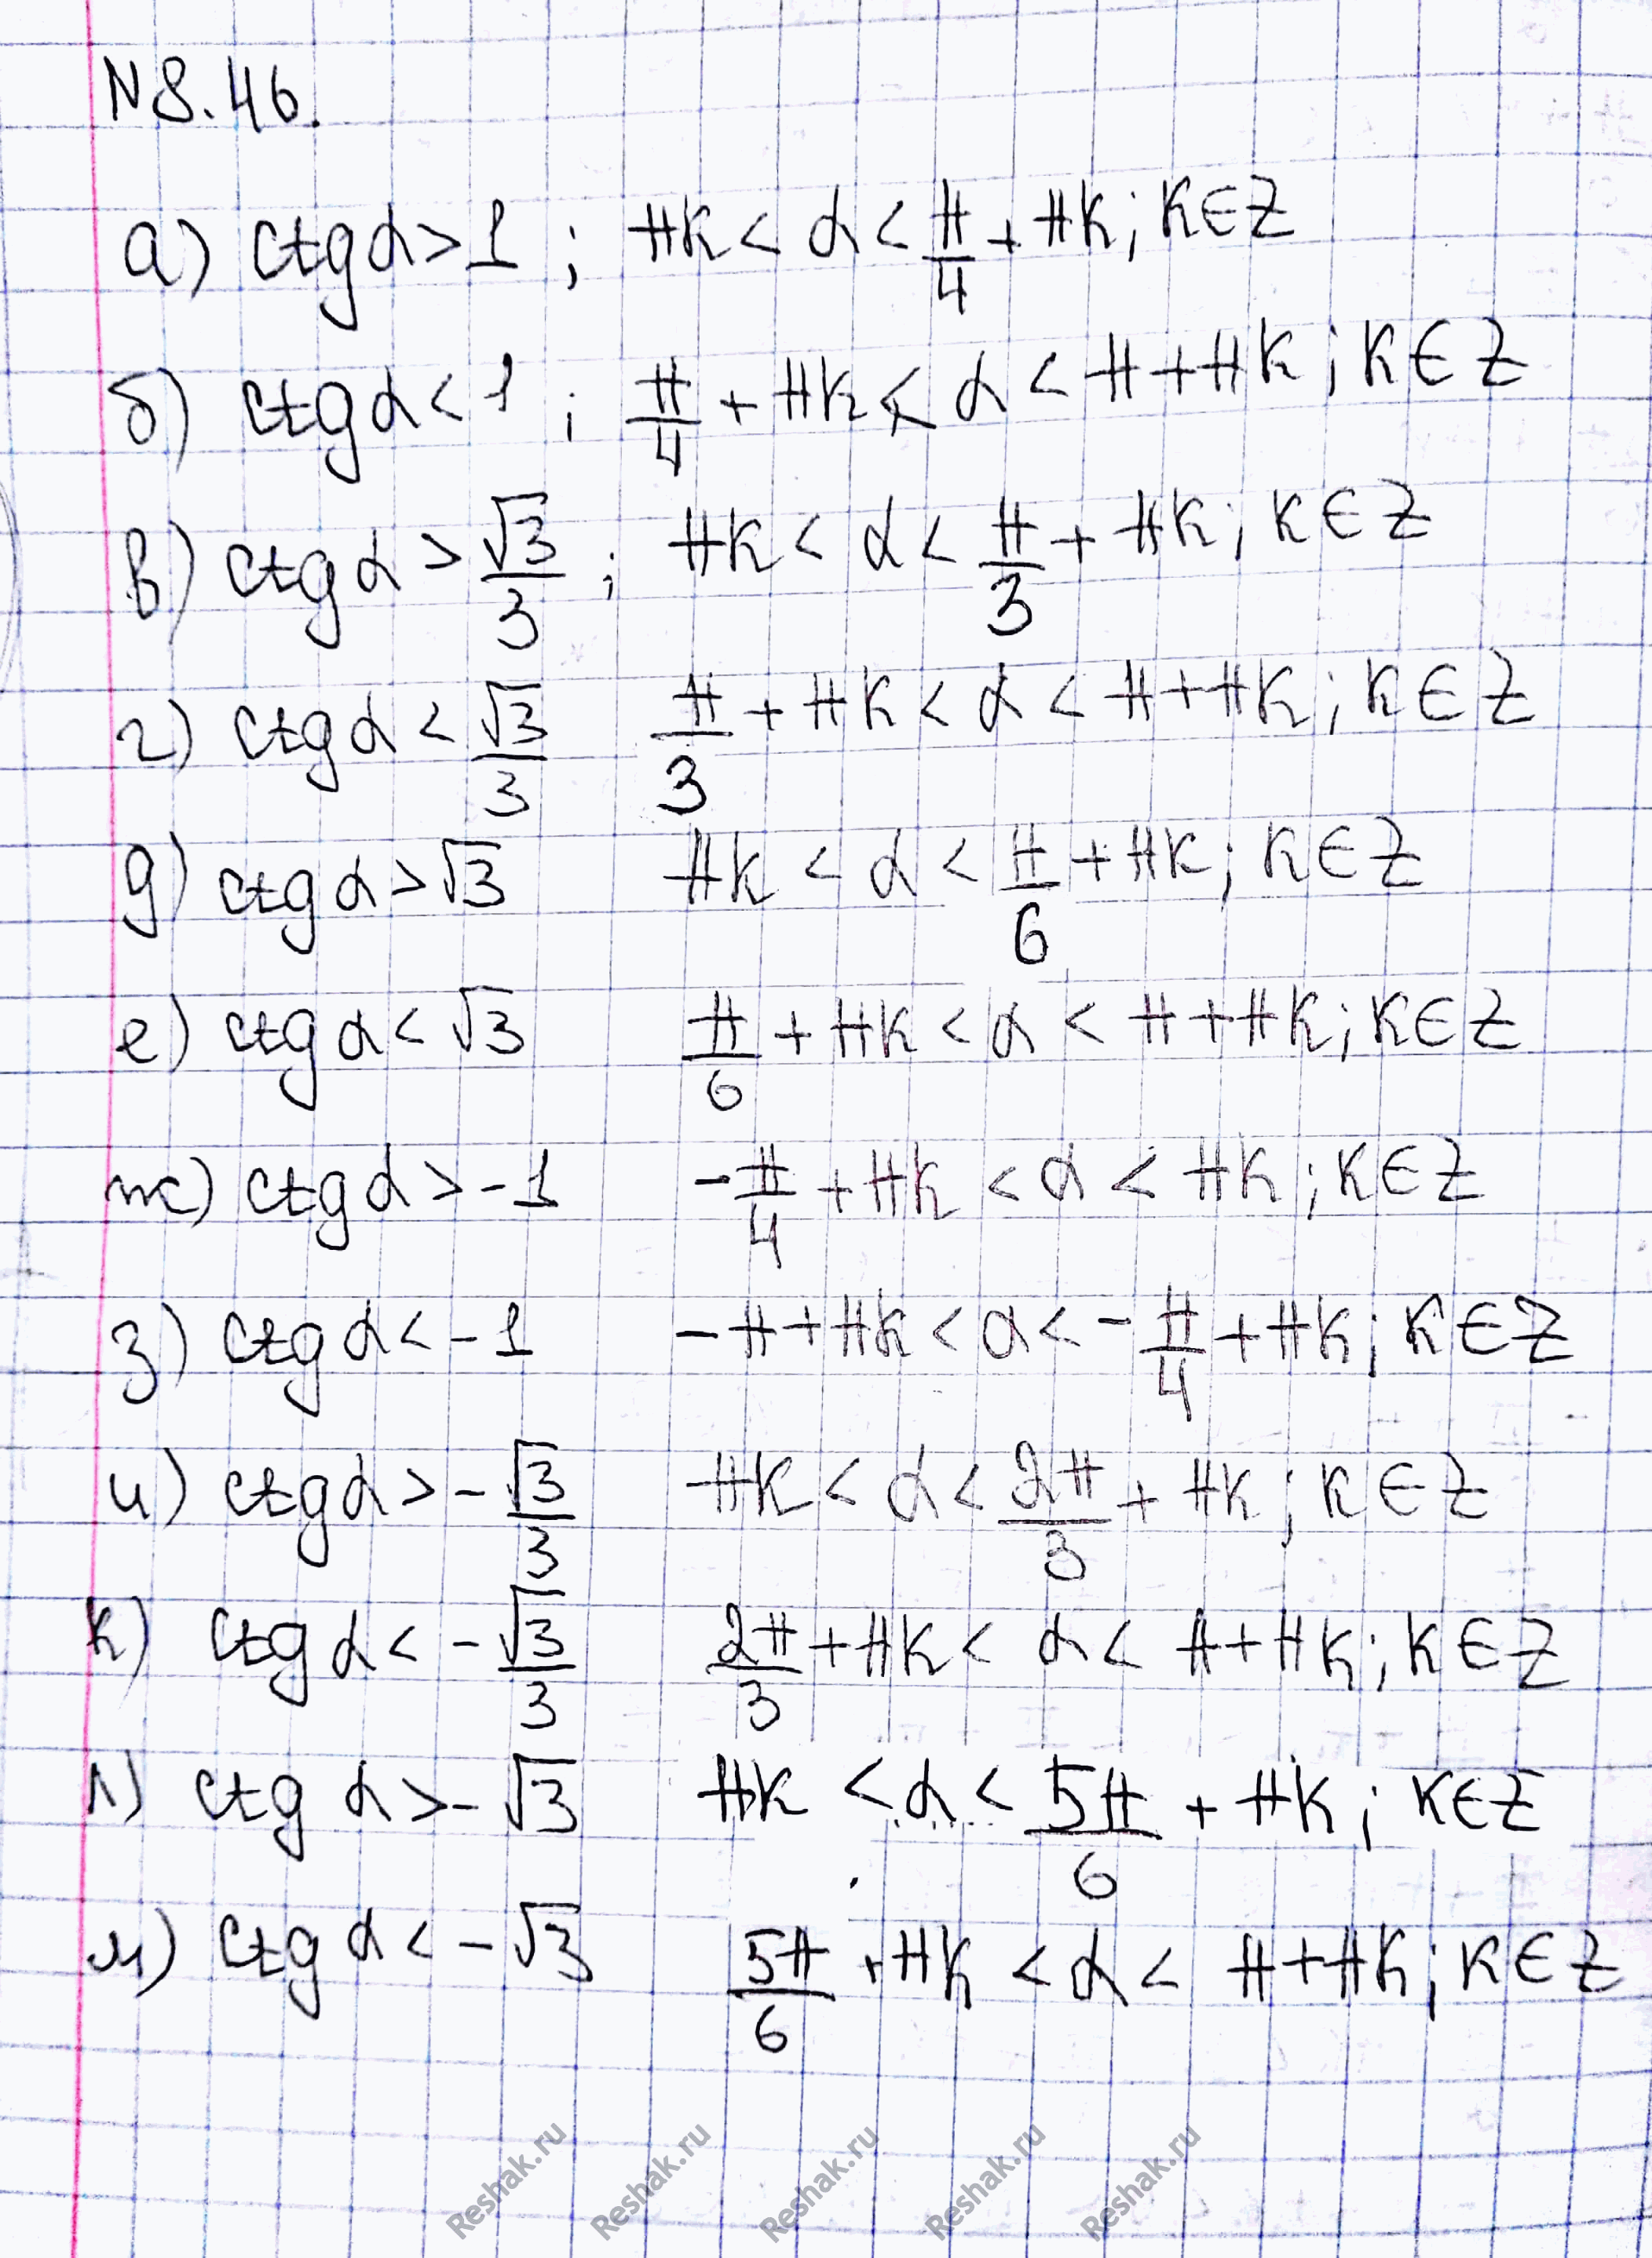 N 8.46.
а) ctg α > 1 ; πk < α < π/4 + πk; k∈Z
б) ctg α < 1 ; π/4 + πk < α < π + πk; k∈Z
в) ctg α > √3/3 ; πk < α < π/3 + πk; k∈Z
г) ctg α < √3/3 π/3 + πk < α < π + πk; k∈Z
д) ctg α > √3 πk < α < π/6 + πk; k∈Z
е) ctg α < √3 π/6 + πk < α < π + πk; k∈Z
ж) ctg α > -1 -π/4 + πk < α < πk; k∈Z
з) ctg α < -1 -π + πk < α < -π/4 + πk; k∈Z
и) ctg α > -√3/3 πk < α < 2π/3 + πk; k∈Z
к) ctg α < -√3/3 2π/3 + πk < α < π + πk; k∈Z
л) ctg α > -√3 πk < α < 5π/6 + πk; k∈Z
м) ctg α < -√3 5π/6 + πk < α < π + πk; k∈Z
Reshak.ru Reshak.ru Reshak.ru Reshak.ru Reshak.ru